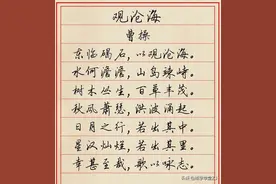 观沧海
曹操
东临碣石，以观沧海。
水何澹澹，山岛竦峙。
树木丛生，百草丰茂。
秋风萧瑟，洪波涌起。
日月之行，若出其中。
星汉灿烂，若出其里。
幸甚至哉，歌以咏志。